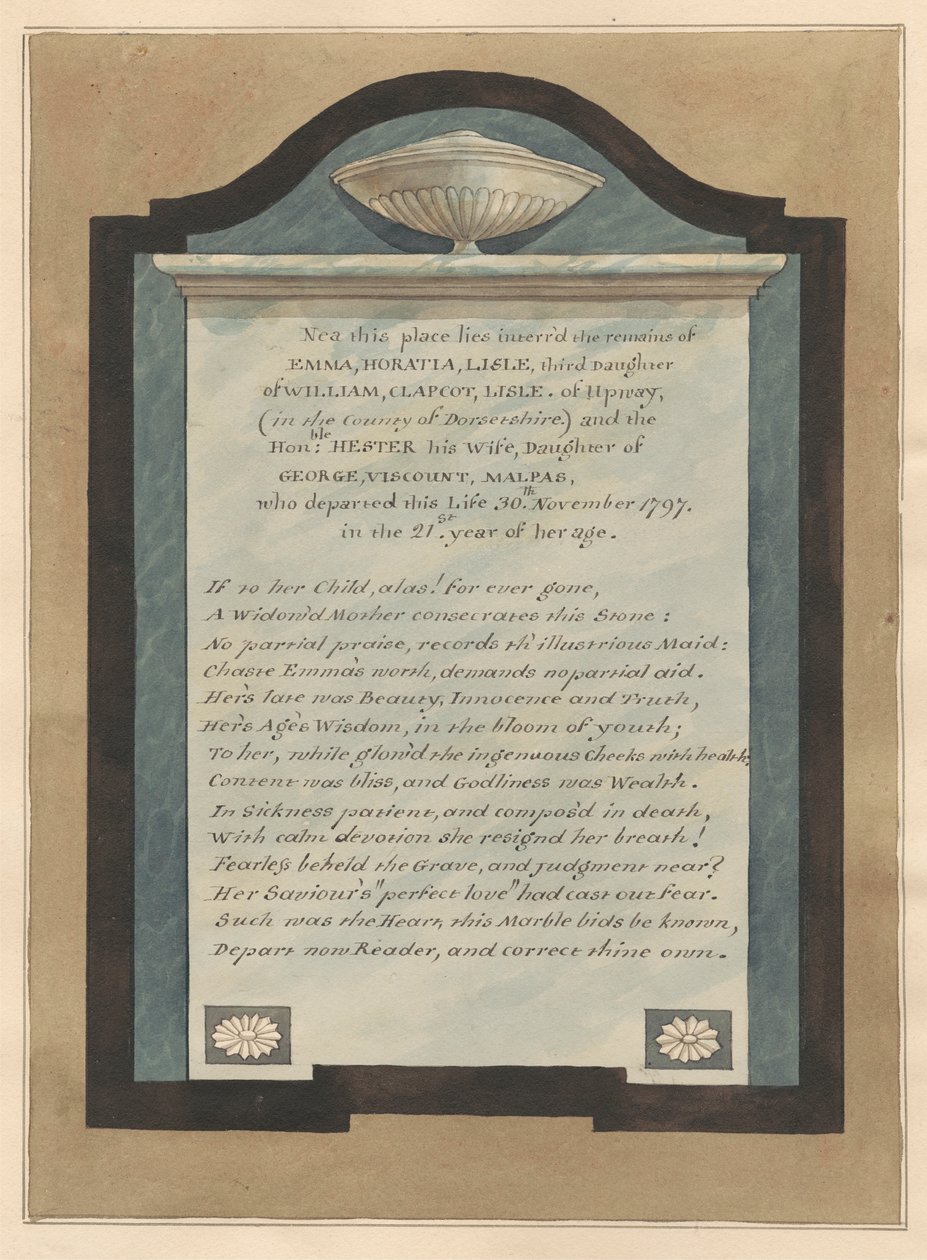 Nea this place lies interr'd the remains of
EMMA, HORATIA, LISLE, third Daughter
of WILLIAM, CLAPCOT, LISLE. of Upway,
(in the County of Dorsetshire.) and the
Hon:ble HESTER his Wife, Daughter of
GEORGE, VISCOUNT, MALPAS,
who departed this Life 30.Th November 1797.
in the 21.st year of her age.
If to her Child, alas! for ever gone,
A Widow'd Mother consecrates this Stone:
No partial praise, records th' illustrious Maid:
Chaste Emma's worth, demands no partial aid.
Her's late was Beauty, Innocence and Truth,
Her's Age's Wisdom, in the bloom of youth;
To her, while glow'd the ingenuous Cheeks with health,
Content was bliss, and Godliness was Wealth.
In Sickness patient, and compos'd in death,
With calm devotion she resignd her breath!
Fearless beheld the Grave, and Judgment near?
Her Saviour's "perfect love" had cast out fear.
Such was the Heart, this Marble bids be known,
Depart now Reader, and correct thine own.